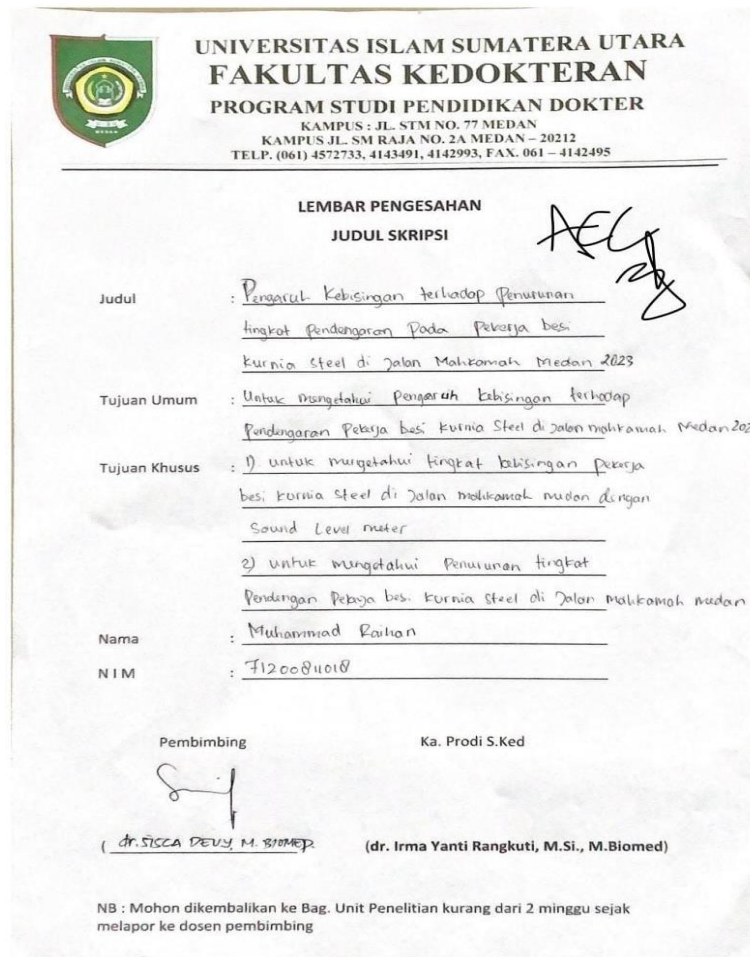 UNIVERSITAS ISLAM SUMATERA UTARA
FAKULTAS KEDOKTERAN
PROGRAM STUDI PENDIDIKAN DOKTER
KAMPUS : JL. STM NO. 77 MEDAN
KAMPUS JL. SM RAJA NO. 2A MEDAN – 20212
TELP. (061) 4572733, 4143491, 4142993, FAX. 061 – 4142495
LEMBAR PENGESAHAN
JUDUL SKRIPSI
Judul : Pengaruh Kebisingan terhadap Penurunan
tingkat Pendengaran Pada Pekerja besi
Kurnia Steel di Jalan Mahkamah Medan 2023
Tujuan Umum : Untuk mengetahui Pengaruh kebisingan terhadap
Pendengaran Pekerja besi Kurnia Steel di Jalan mahkamah Medan 202
Tujuan Khusus : 1) untuk mengetahui tingkat kebisingan Pekerja
besi Kurnia Steel di Jalan mahkamah medan dengan
Sound Level meter
2) untuk mengetahui Penurunan tingkat
Pendengan Pekerja besi Kurnia Steel di Jalan Mahkamah medan
Nama : Muhammad Raihan
NIM :
Pembimbing Ka. Prodi S.Ked
( dr. SISCA DEVY, M. BIOMED. (dr. Irma Yanti Rangkuti, M.Si., M.Biomed)
NB : Mohon dikembalikan ke Bag. Unit Penelitian kurang dari 2 minggu sejak
melapor ke dosen pembimbing